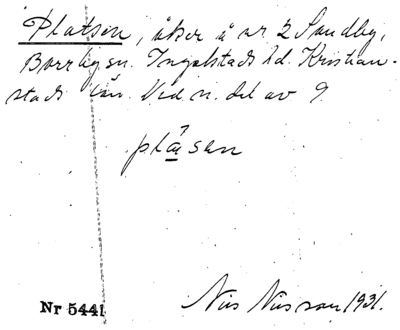 Platsen, åker å nr 2 Sandby,
Borrby sn. Ingelstads hd. Kristian-
stads län. Vid n. del av 9.
plásen
Nils Nilsson 1931.
Nr 5441